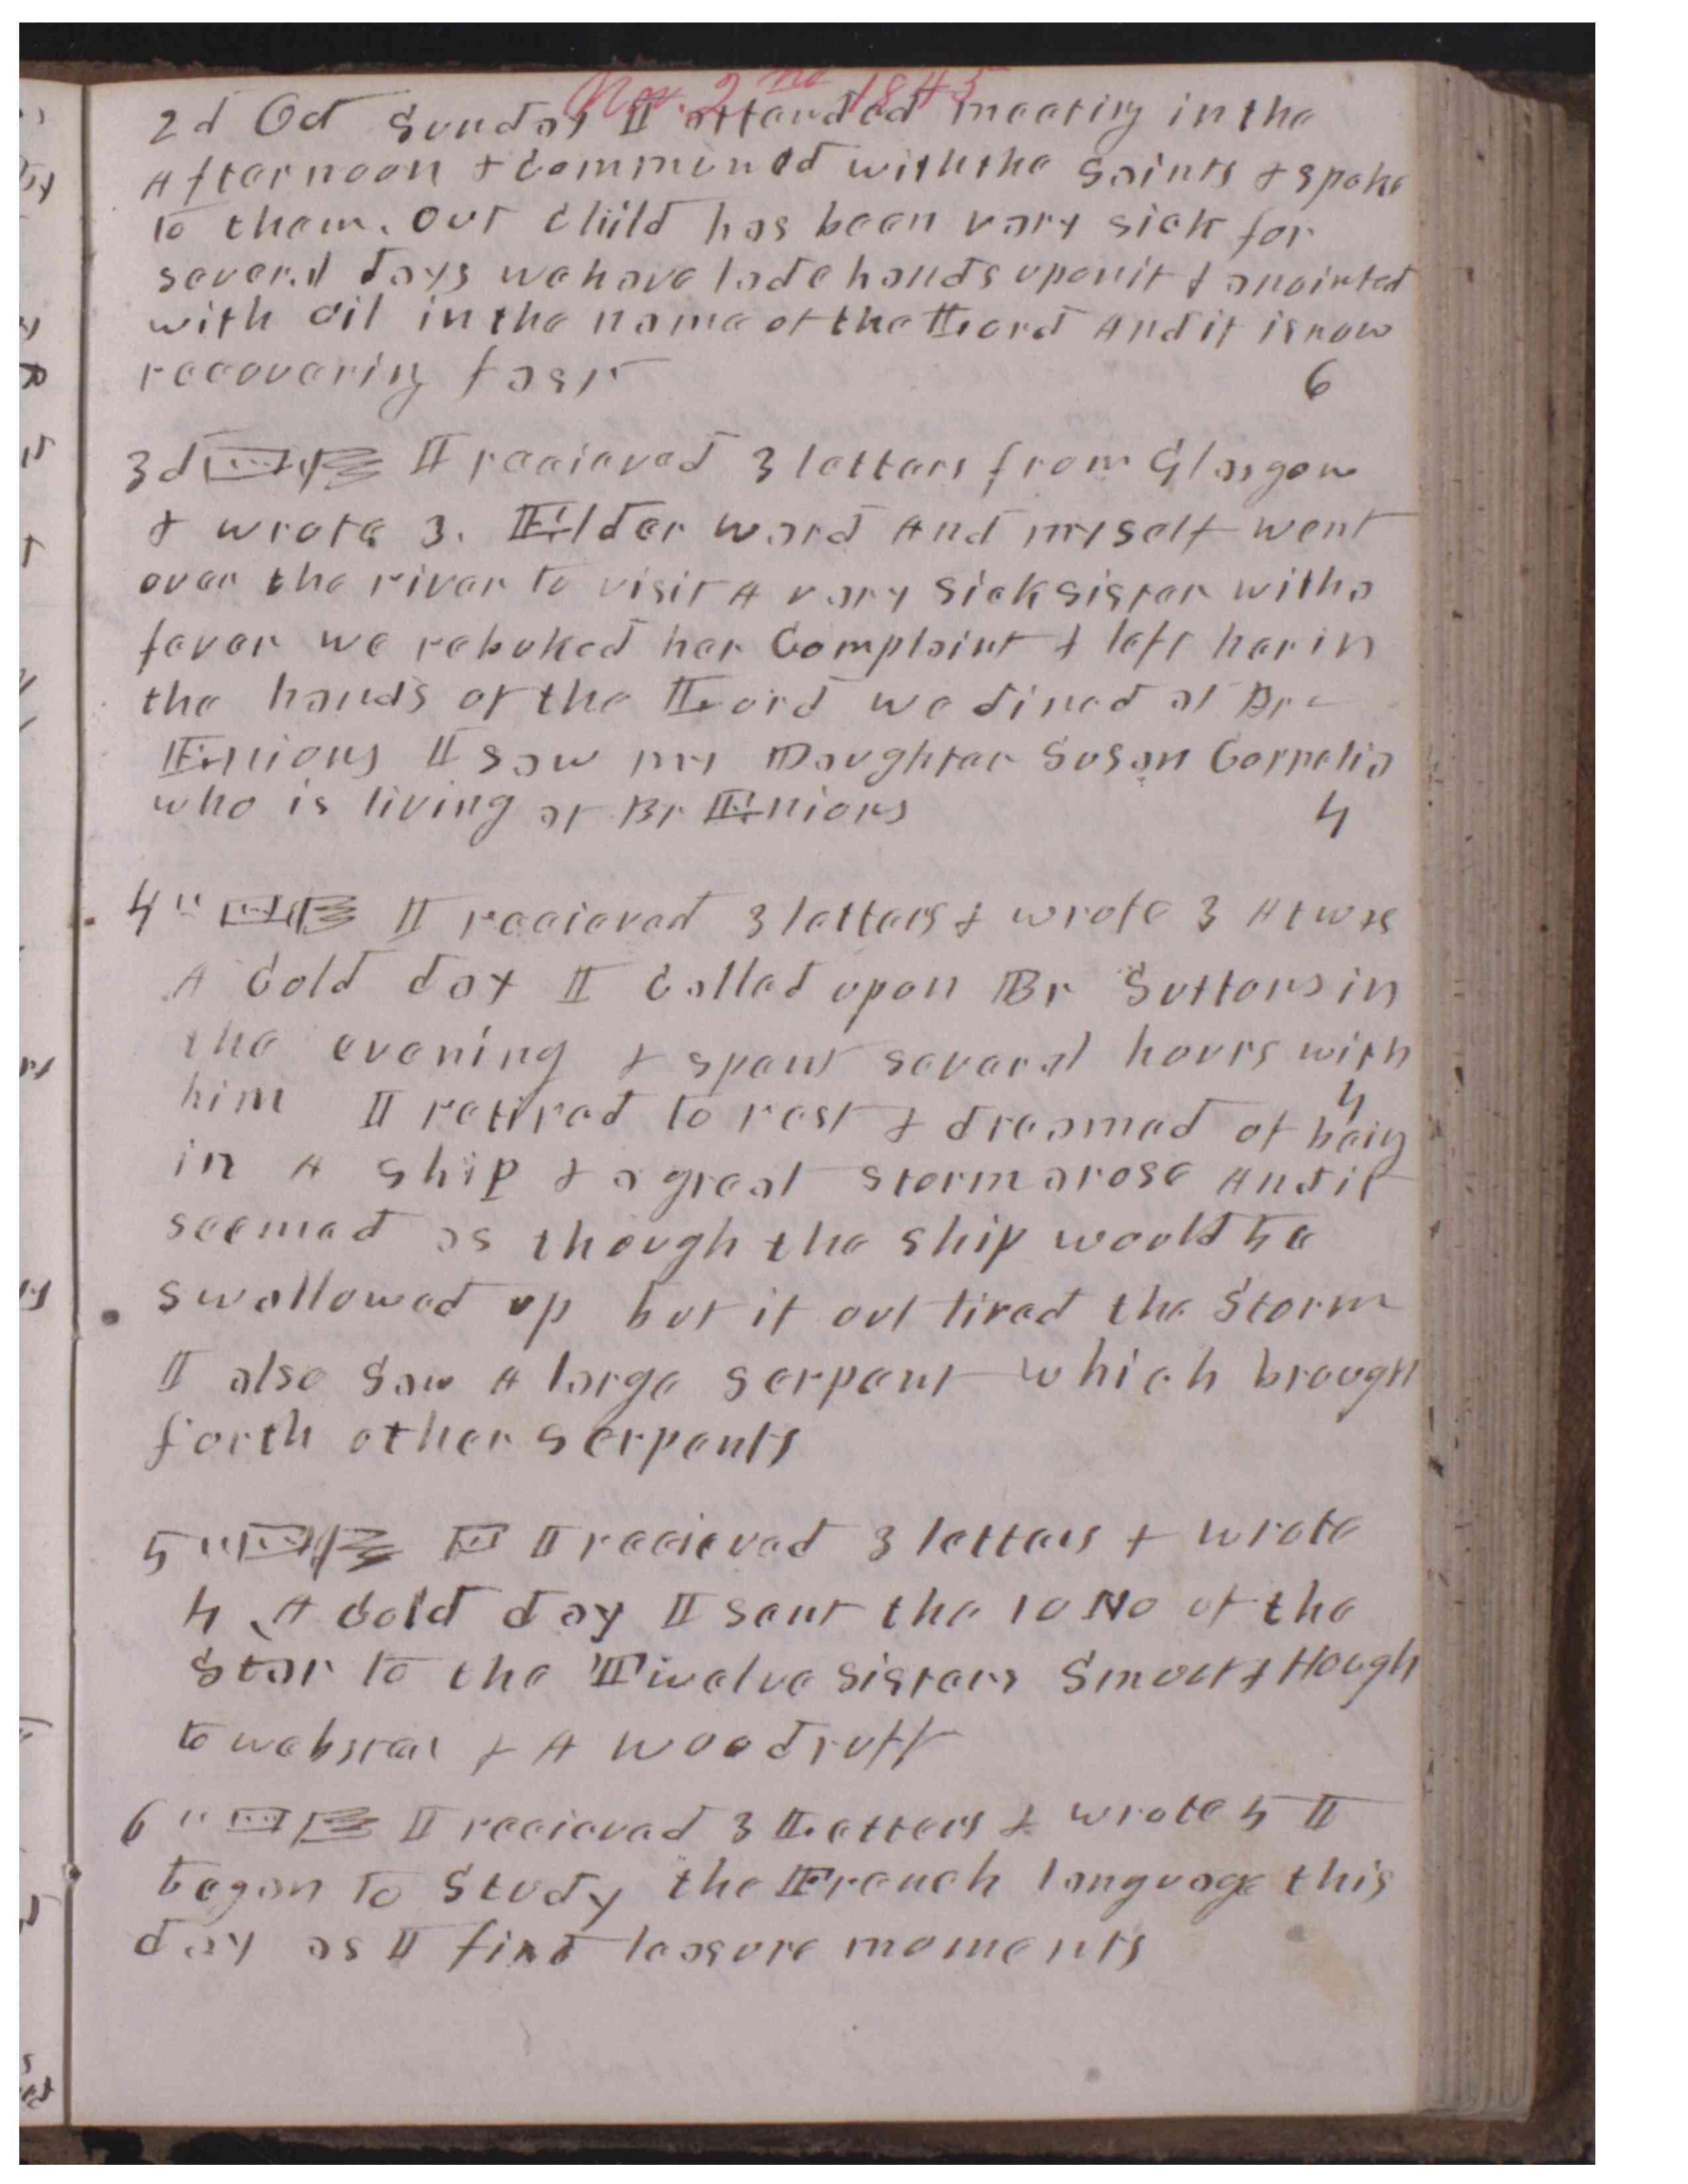 Nov. 2nd 1845
2d Oct Sunday I attended meeting in the
Afternoon & Communed with the Saints & spoke
to them. Our Child has been very sick for
several days we have lade hands upon it & anointed
with oil in the name of the Lord And it is now
recovering fast 6
3d I recieved 3 letters from Glasgow
& wrote 3. Elder Ward And myself went
over the river to visit A very sick sister with a
fever we rebuked her Complaint & left her in
the hands of the Lord we dined at Br
Enions I saw my Daughter Susan Cornelia
who is living at Br Enions 4
4" I recieved 3 letters & wrote 3 At was
A Cold day I Called upon Br Suttons in
the evening & spent several hours with
him I retired to rest & dreamed of being 4
in A ship & a great storm arose And it
seemed as though the ship would be
swallowed up but it out lived the Storm
I also Saw A large serpent which brought
forth other serpents
5" I recieved 3 letters & wrote
4 A Cold day I sent the 10 No of the
Star to the Twelve Sisters Smoot & Hough
to Webster & A Woodruff
6" I recieved 3 Letters & wrote 5 I
began to Study the French language this
day as I find leasure moments